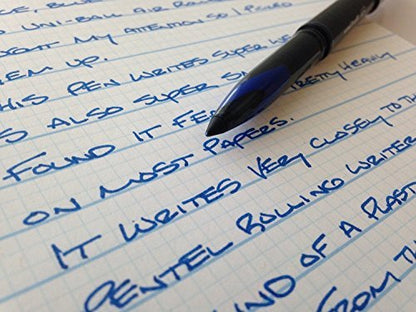 E, BLU
UNI-BALL AIR ROL
UGHT MY ATTENTION SO I PICKED
EM UP.
HIS PEN WRITES SUPER WE
S ALSO SUPER S
FOUND IT FE PRETTY HEAVILY
ON MOST PAPERS.
IT WRITES VERY CLOSELY TO TH
PENTEL ROLLING WRITER
IND OF A PLAST
FROM TH